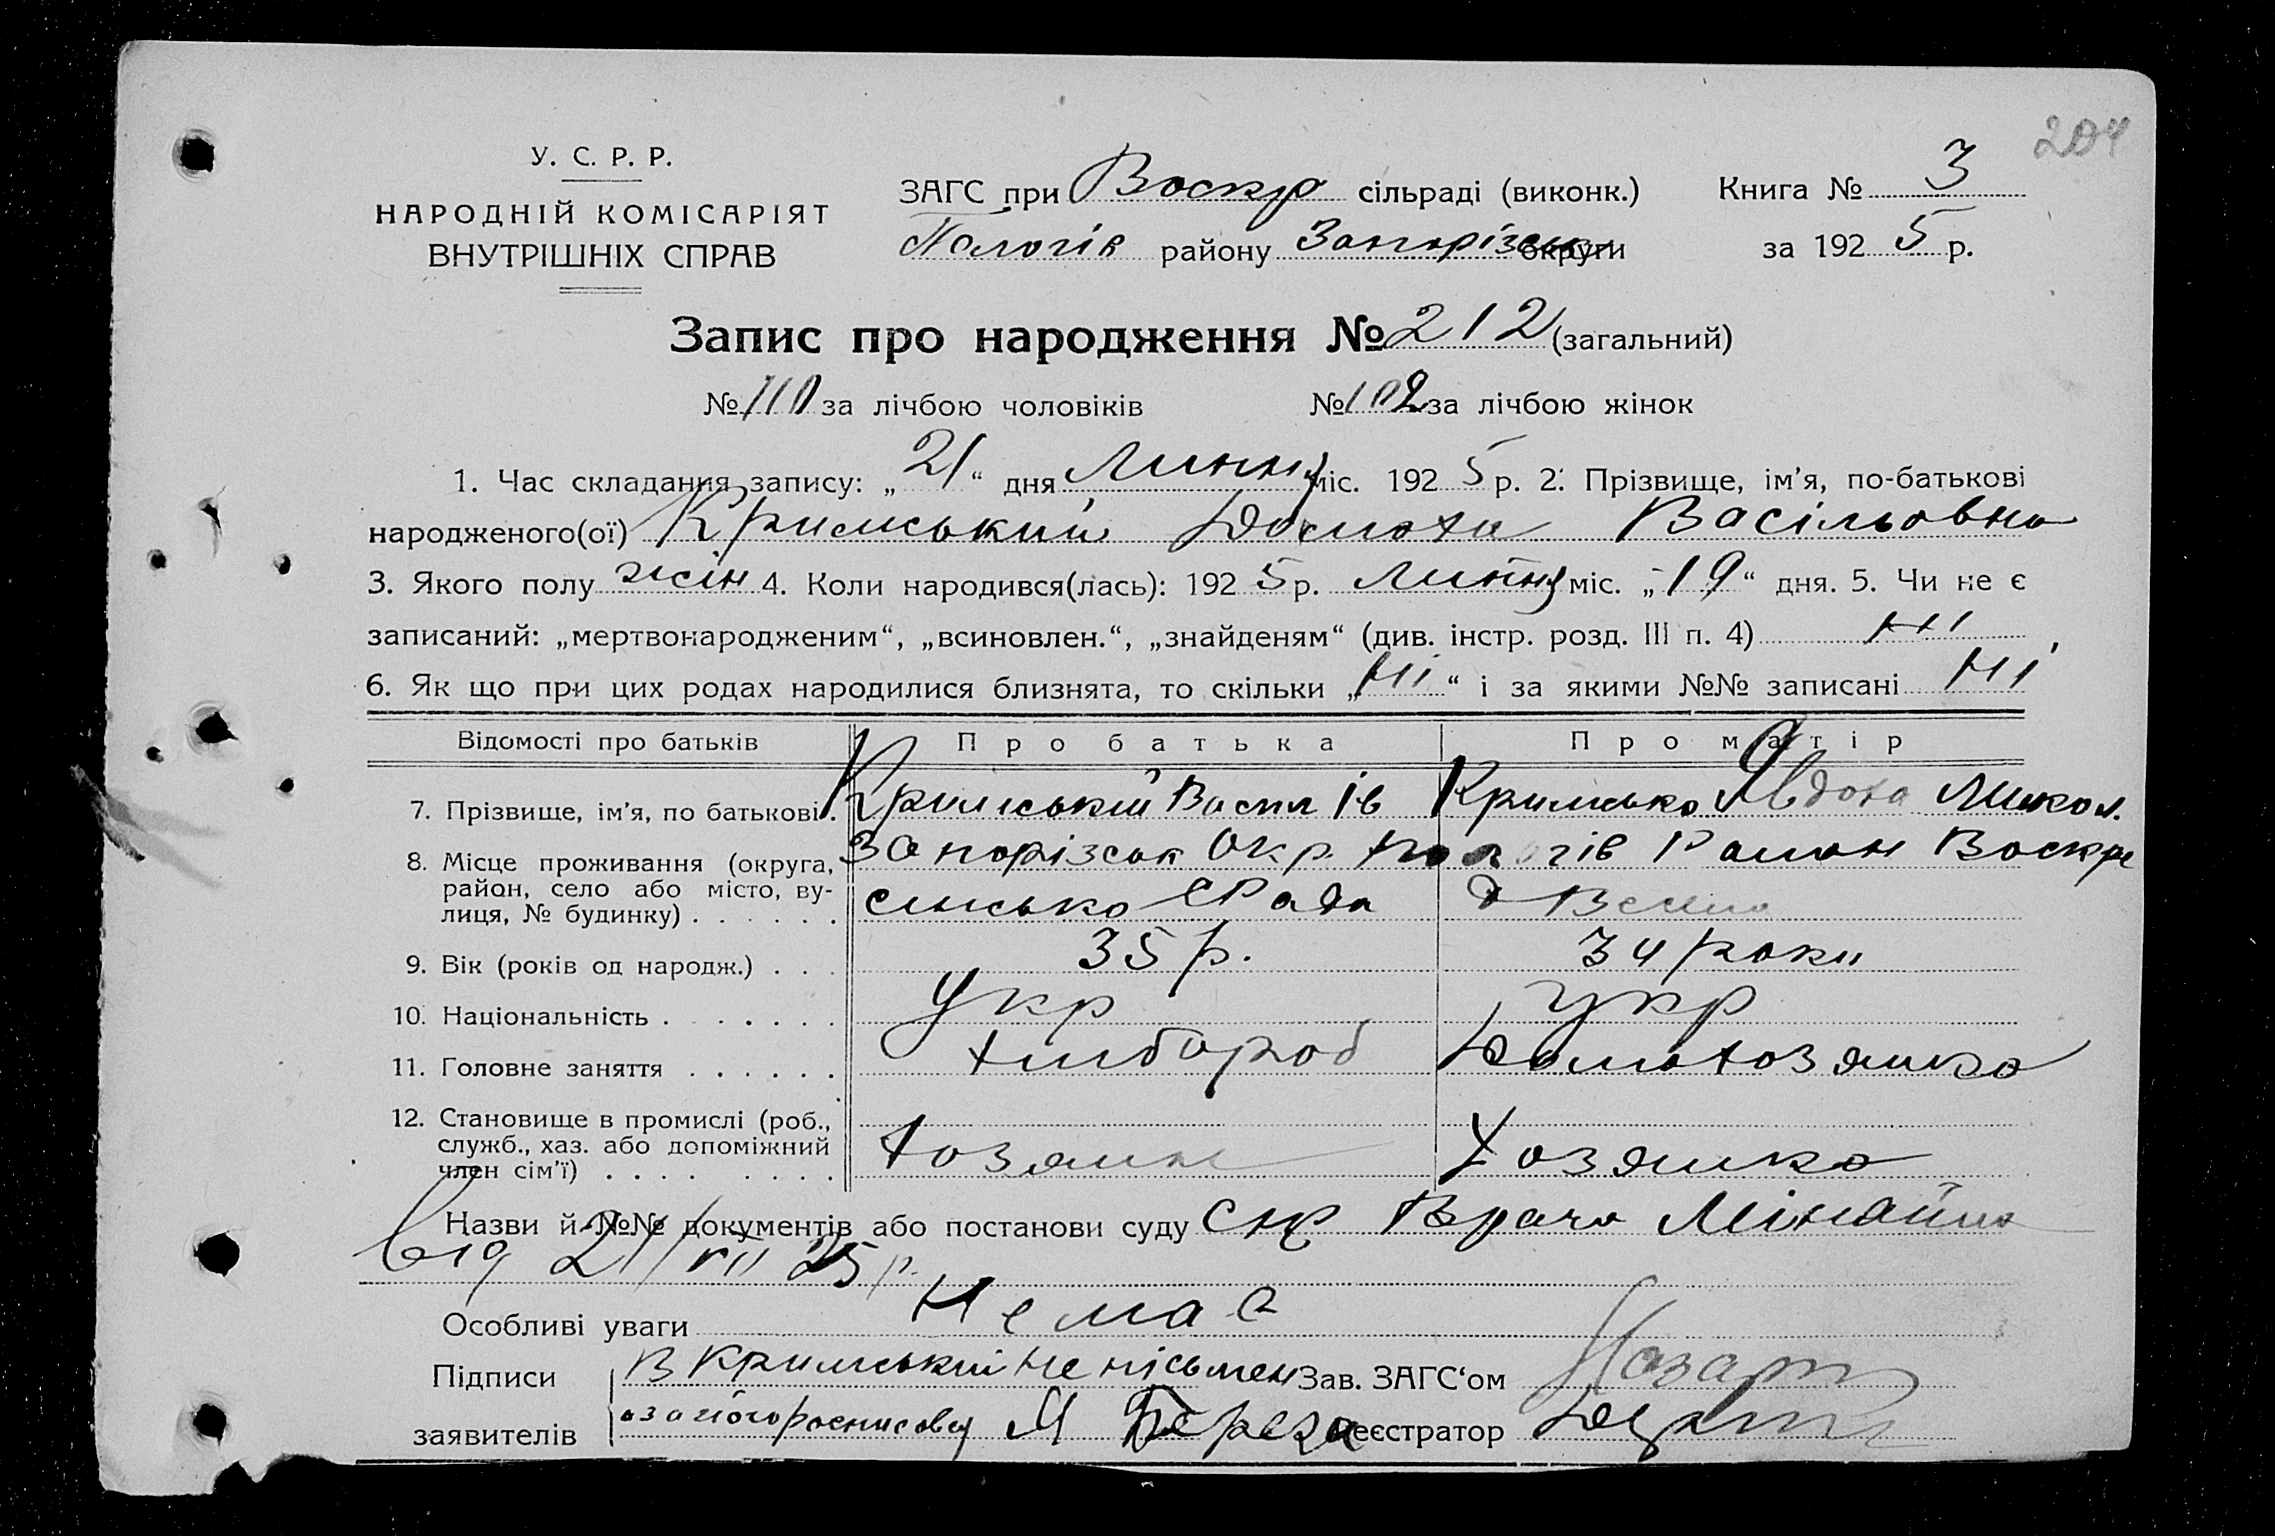 204
У. С. Р. Р.
НАРОДНІЙ КОМІСАРІЯТ
ВНУТРІШНІХ СПРАВ
ЗАГС при Воскр сільраді (виконк.) Книга № 3
Пологів району Запорізськ округи за 1925 р.
Запис про народження № 212 (загальний)
№ 110 за лічбою чоловіків № 102 за лічбою жінок
1. Час складання запису: „21“ дня Липня міс. 1925 р. 2. Прізвище, ім’я, по-батькові
народженого(ої) Кримський Васільовна
3. Якого полу жін 4. Коли народився(лась): 1925 р. Липня міс. „19“ дня. 5. Чи не є
записаний: „мертвонародженим“, „всиновлен.“, „знайденям“ (див. інстр. розд. III п. 4) Ні
6. Як що при цих родах народилися близнята, то скільки „Ні“ і за якими №№ записані Ні
Відомості про батьків Про батька Про матір
7. Прізвище, ім’я, по батькові. Кримській Васил Ів Кримсько Явдоха Микол.
8. Місце проживання (округа, Запорізськ Окр. Пологів Район Воскре
район, село або місто, ву- сенсько Рада
лиця, № будинку)
9. Вік (років од народж.) 35 р. 34 роки
10. Національність Укр Укр
11. Головне заняття хлібороб Домохозяйка
12. Становище в промислі (роб.,
служб., хаз. або допоміжний Хозяин Хозяйка
член сім’ї)
Назви й №№ документів або постанови суду Врача
від 21/VII 25 р.
Особливі уваги Немає
Підписи В Кримський не пісьмен Зав. ЗАГС‘ом
заявителів росписовся Я Береза Реєстратор